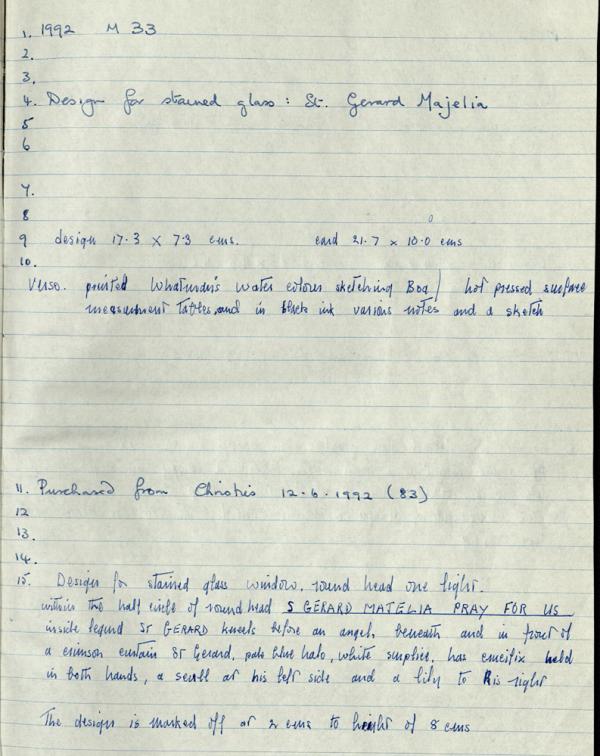 1. 1992 M 33
2.
3.
4. Design for stained glass: St. Gerard Majelia
5
6
7.
8
9 design 17.3 x 7.3 cms. card 21.7 x 10.0 cms
10.
Verso. printed Whatman's water colour sketching Boa/ hot pressed surface
measurement tables, and in black ink various notes and a sketch
11. Purchased from Christies 12.6.1992 (83)
12
13.
14.
15. Design for stained glass window, round head one light.
within the half circle of round head S GERARD MATELIA PRAY FOR US
inside legend ST GERARD kneels before an angel, beneath and in front of
a crimson curtain St Gerard, pale blue halo, white surplice, has crucifix held
in both hands, a scull at his left side and a lily to his right
The design is marked off at 2 cms to height of 8 cms